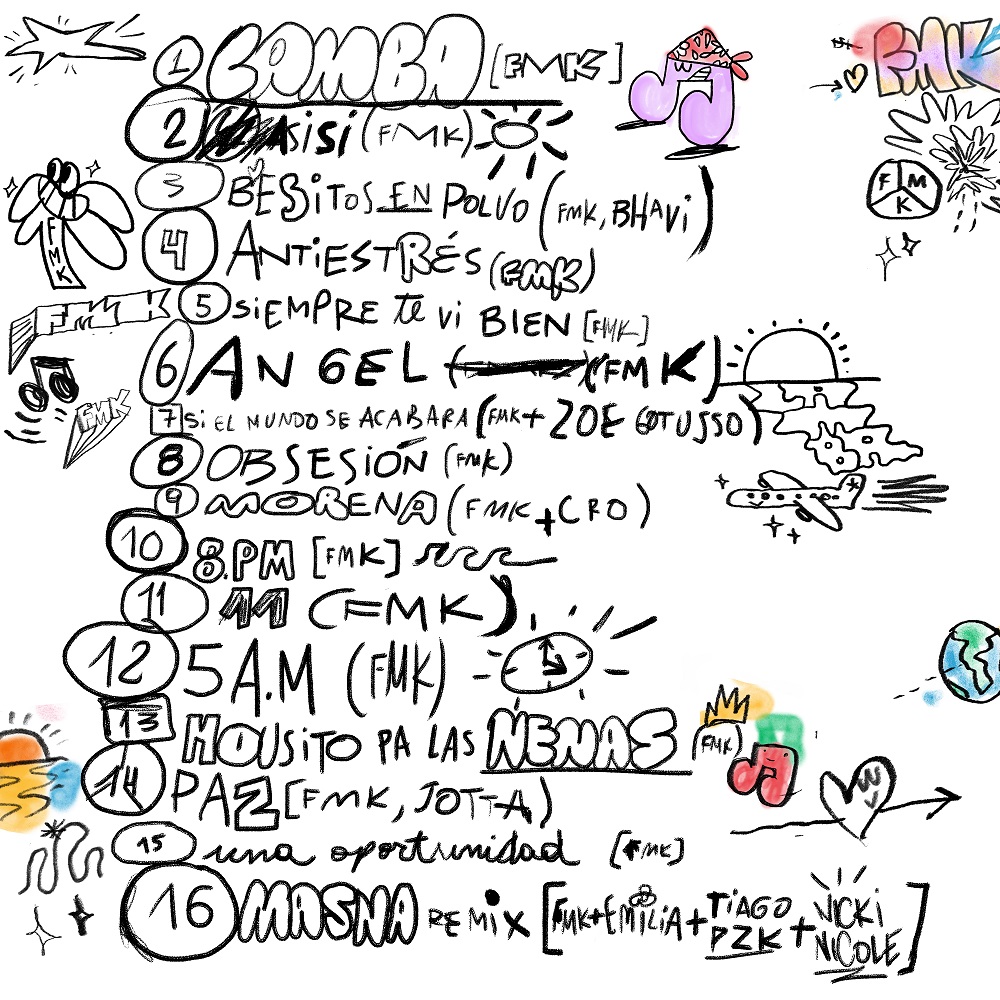 FMK
1 BOMBA [FMK]
2 ASISI (FMK)
F M K
3 BEBitos EN POLVO (FMK, BHAVi)
FMK
4 ANTiESTRÉS (FMK)
FMK
5 siEMPRE te vi BIEN [FMK]
6 ANGEL (FMK)
FMK
7 Si EL MUNDO SE ACABARA (FMK + ZOE GOTUSSO)
8 OBSESIÓN (FMK)
9 MORENA (FMK + CRO)
10 8.PM [FMK]
11 11 (FMK)
12 5 A.M (FMK)
13 HOUSiTO PA LAS NENAS (FMK)
14 PAZ [FMK, JOTTA)
15 una oportunidad [FMK]
16 MASNA REMiX [FMK + EMiLiA + TiAGO PZK + NICKi NICOLE]